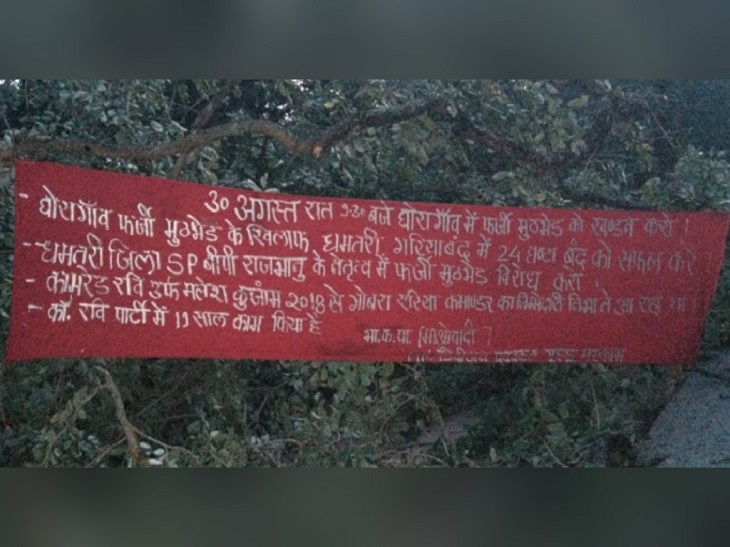 30 अगस्त रात 9.30 बजे घोरागाँव में फर्जी मुठभेड को खण्डन करो।
- घोरागाँव फर्जी मुठभेड के खिलाफ, धमतरी, गरियाबंद में 24 घण्टा बंद को सफल करें
- धमतरी जिला SP बीपी राजभानु के नेतृत्व में फर्जी मुठभेड विरोध करो।
- कामरेड रवि उर्फ मलेश कुंजाम 2018 से गोबरा एरिया कमाण्डर का जिम्मेदारी निभाते आ रहा था।
- कॉ. रवि पार्टी में 11 साल काम किया है
भा.क.पा. (माओवादी)